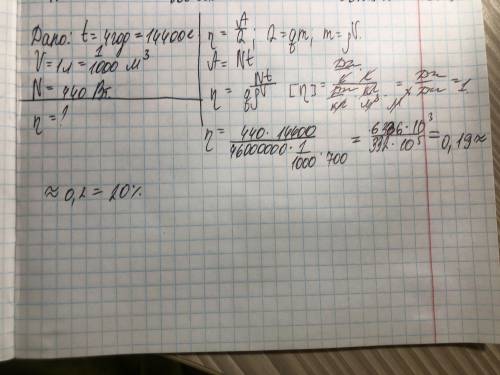 Дано: t = 4год = 14400с
V = 1л = 1/1000 м³
N = 440 Вт
η = ?
η = A/Q; Q = qm, m = ρV.
A = Nt
η = Nt/qρV [η] = = Дж/Дж = 1
η = 440 · 14400 / 46000000 · 1/1000 · 700 = 6336 · 10³ / 322 · 10⁵ = 0,19 ≈
≈ 0,2 = 20%